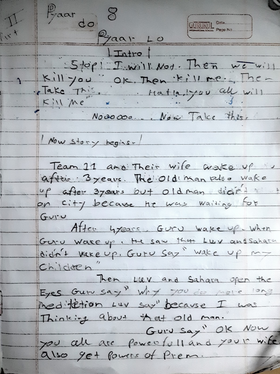 II
Part
Pyaar 8
do
Pyaar Lo
Date
Page No.
| Intro |
Stop! I will Not. Then we will
Kill you" OK. Then "kill me. The-
Take This. Hatja! you all will
Kill me"
Noooooo... Now Take this.
| Now story begins! |
Team 11 and Their wife wake up
after 3years. The old man also wake
up after 3years but old man didn't
on City because he was waiting for
Guru
After 4years. Guru wake up. when
Guru wake up. He saw that Luv and Sahara
didn't wake up. Guru Say" wake up my
Children"
Then Luv and Sahara open the
Eyes Guru say" Why you more long
meditiction Luv say" because I was
Thinking about that old man.
Guru Say" OK Now
you all are powerfull and your wife
also get Powers of Prem.